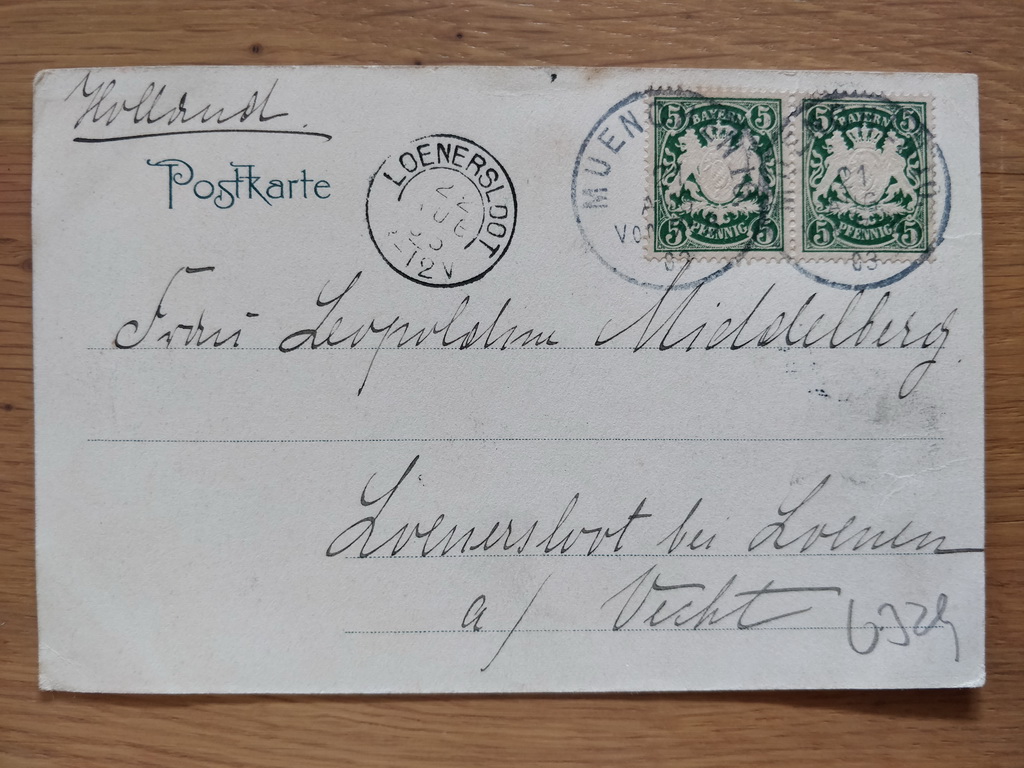 Holland.
Postkarte
LOENERSLOOT
22
AUG
03
-12 V
MUENCHEN
VOR
03
03
5 BAYERN 5
5 PFENNIG 5
5 BAYERN 5
5 PFENNIG 5
21
Frau Leopoldine Middelberg.
Loenersloot bei Loenen
a/ Vecht